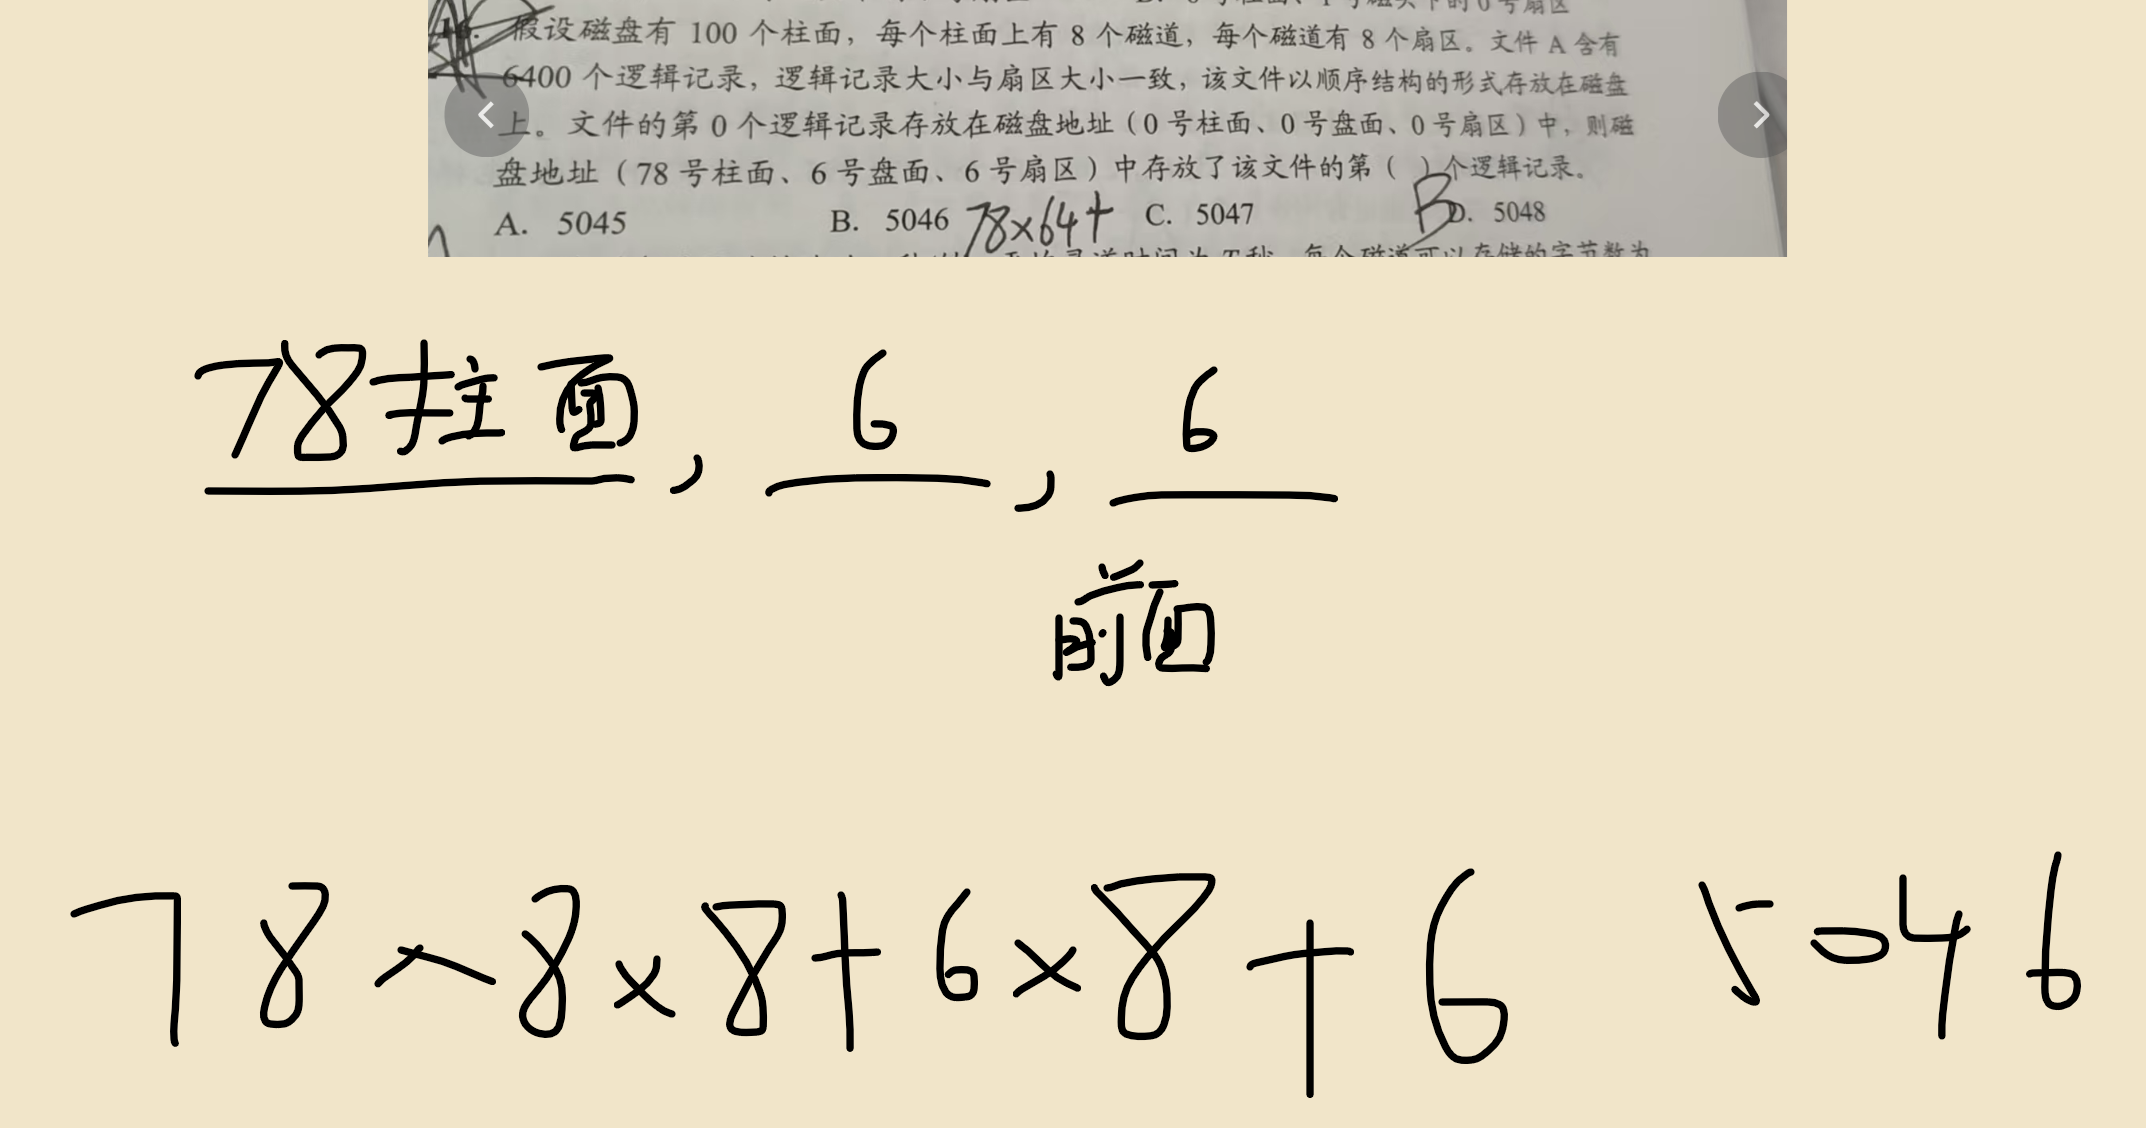 16. 假设磁盘有 100 个柱面，每个柱面上有 8 个磁道，每个磁道有 8 个扇区。文件 A 含有
6400 个逻辑记录，逻辑记录大小与扇区大小一致，该文件以顺序结构的形式存放在磁盘
上。文件的第 0 个逻辑记录存放在磁盘地址（0 号柱面、0 号盘面、0 号扇区）中，则磁
盘地址（78 号柱面、6 号盘面、6 号扇区）中存放了该文件的第（ ）个逻辑记录。
B
A. 5045 B. 5046 78×64+ C. 5047 D. 5048
78柱面, 6, 6
前面
78×8×8+6×8+6 5046